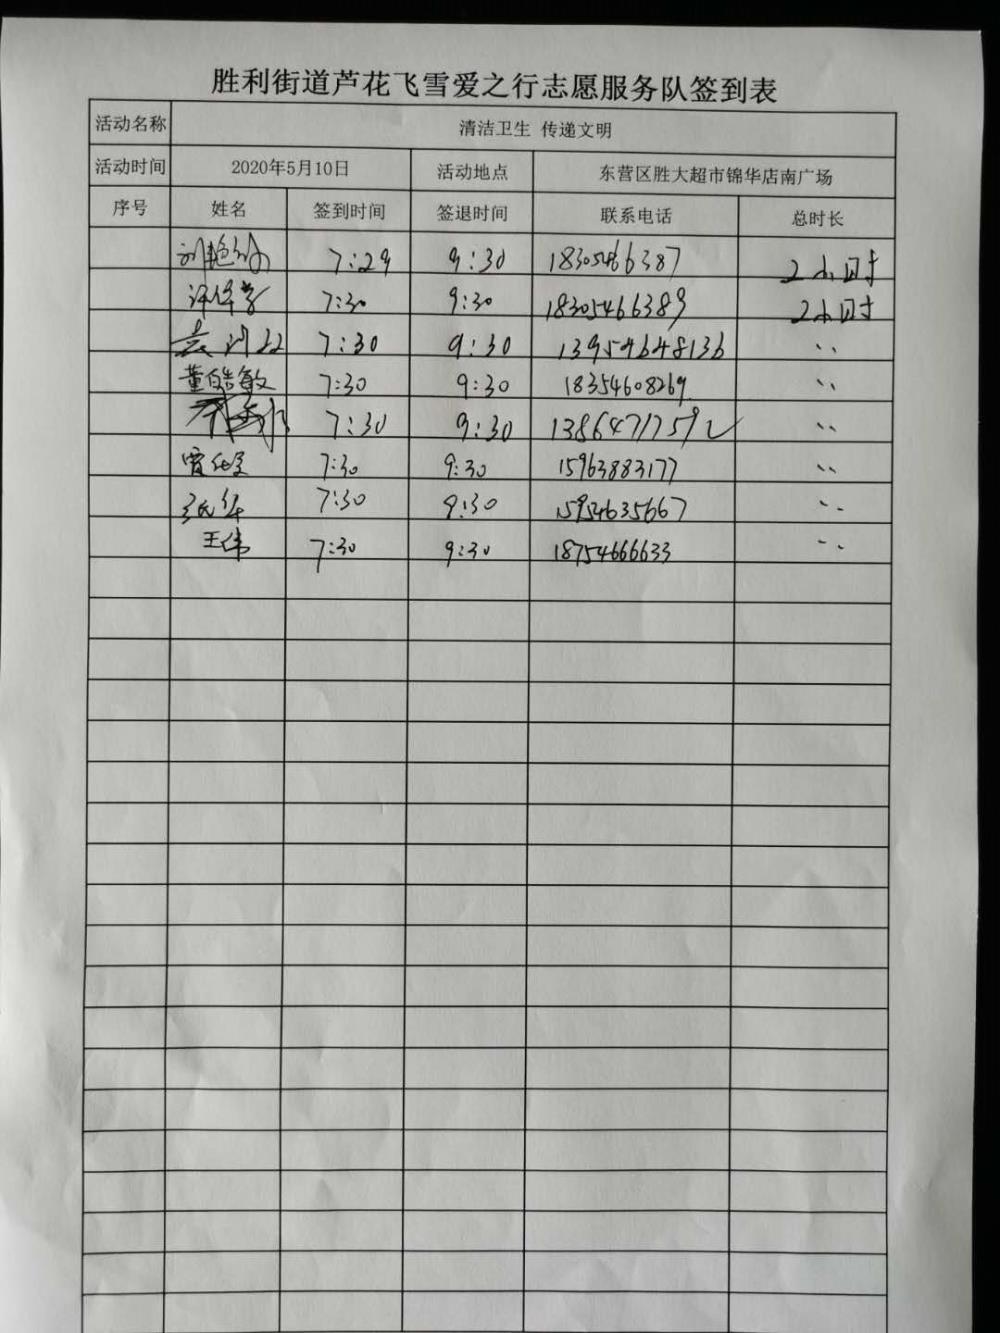 胜利街道芦花飞雪爱之行志愿服务队签到表
活动名称 清洁卫生 传递文明
活动时间 2020年5月10日 活动地点 东营区胜大超市锦华店南广场
序号 姓名 签到时间 签退时间 联系电话 总时长
7:29 9:30 18305466387 2小时
7:30 9:30 18305466389 2小时
7:30 9:30 13954648136 〃
董皓敏 7:30 9:30 18354608269 〃
7:30 9:30 〃
7:30 9:30 15963883177 〃
张华 7:30 9:30 15954635667 〃
王伟 7:30 9:30 18754666633 〃